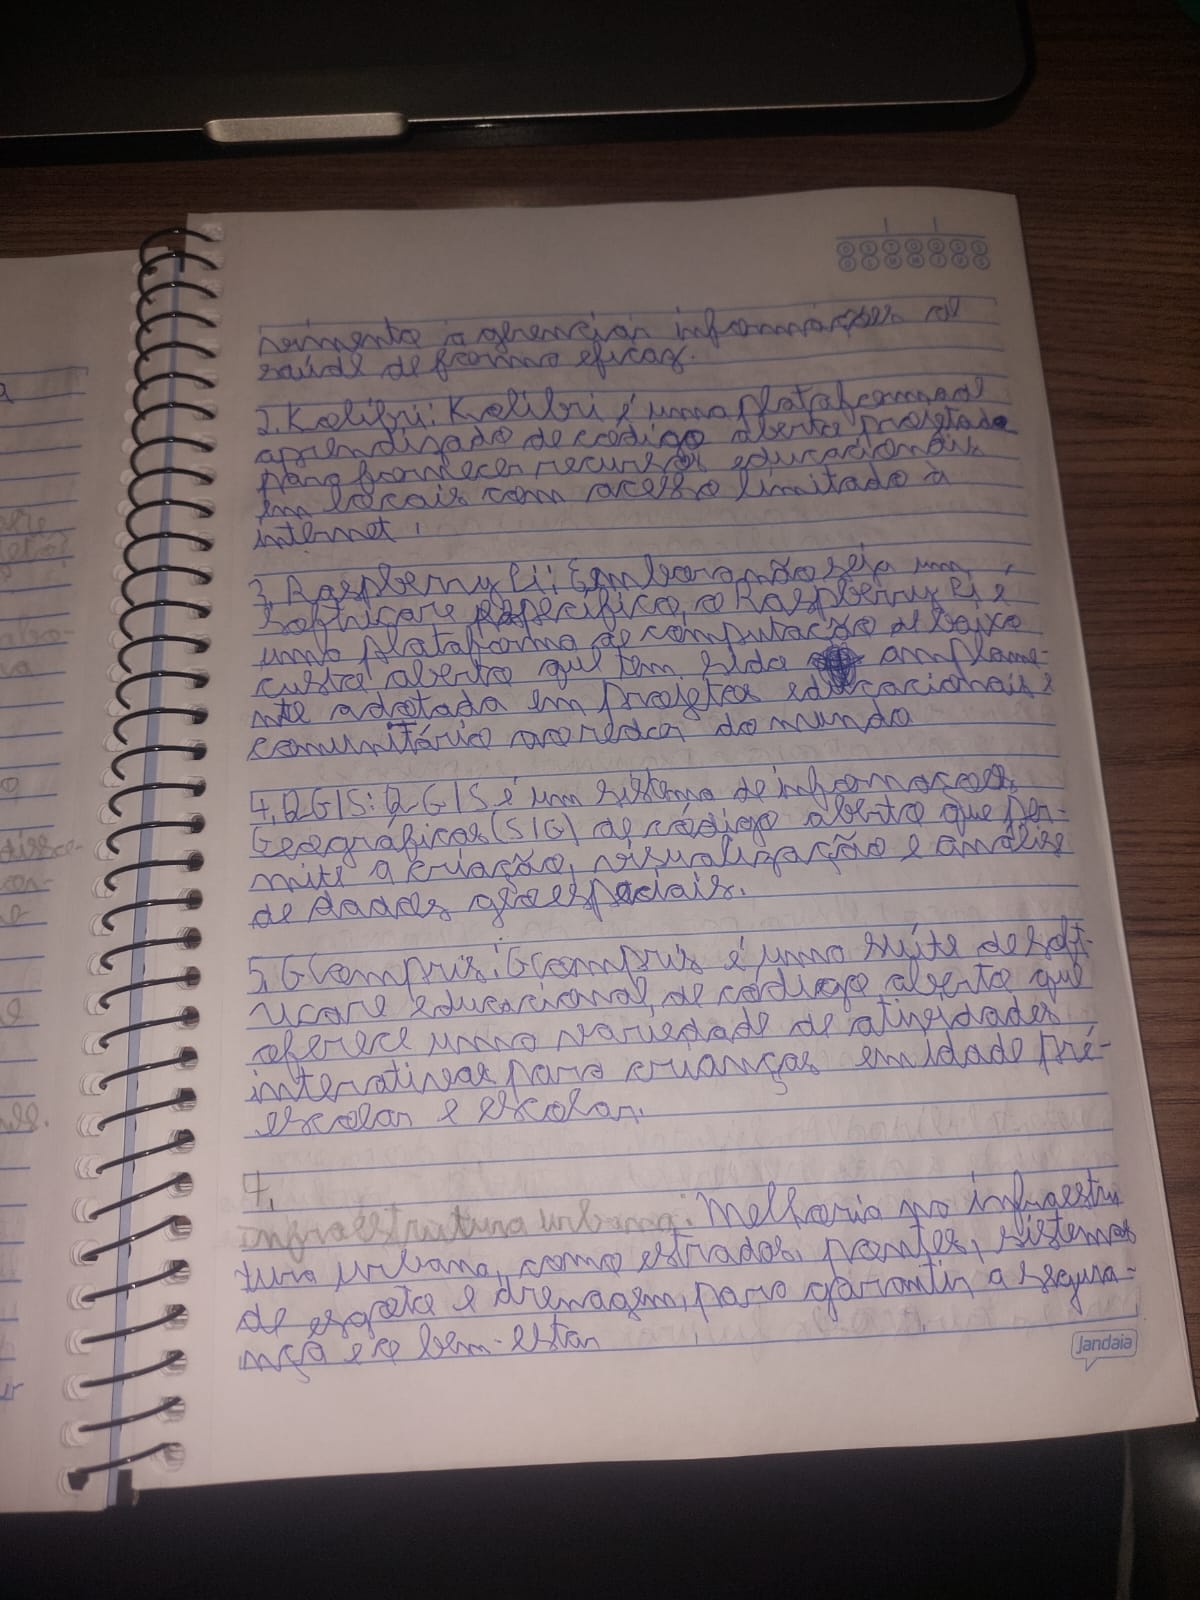 vimento a gerenciar informações de
saúde de forma eficaz.
2. Kolibri: Kolibri é uma plataforma de
aprendizado de código aberto projetada
para fornecer recursos educacionais
em locais com acesso limitado à
internet.
3. Raspberry Pi: Embora não seja um
software específico, o Raspberry Pi é
uma plataforma de computação de baixo
custo aberto que tem sido amplame-
nte adotada em projetos educacionais e
comunitário ao redor do mundo
4. QGIS: QGIS é um sistema de informações
Geográficas (SIG) de código aberto que per-
mite a criação, visualização e análise
de dados geoespaciais.
5. GCompris: GCompris é uma suíte de soft-
ware educacional de código aberto que
oferece uma variedade de atividades
interativas para crianças em idade pré-
escolar e escolar.
4.
Melhoria na infraestru
tura urbana, como estradas, pontes, sistemas
de esgoto e drenagem, para garantir a segura-
nça e o bem-estar
Jandaia